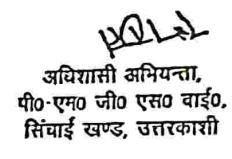 अधिशासी अभियन्ता,
पी०-एम० जी० एस० वाई०,
सिंचाई खण्ड, उत्तरकाशी